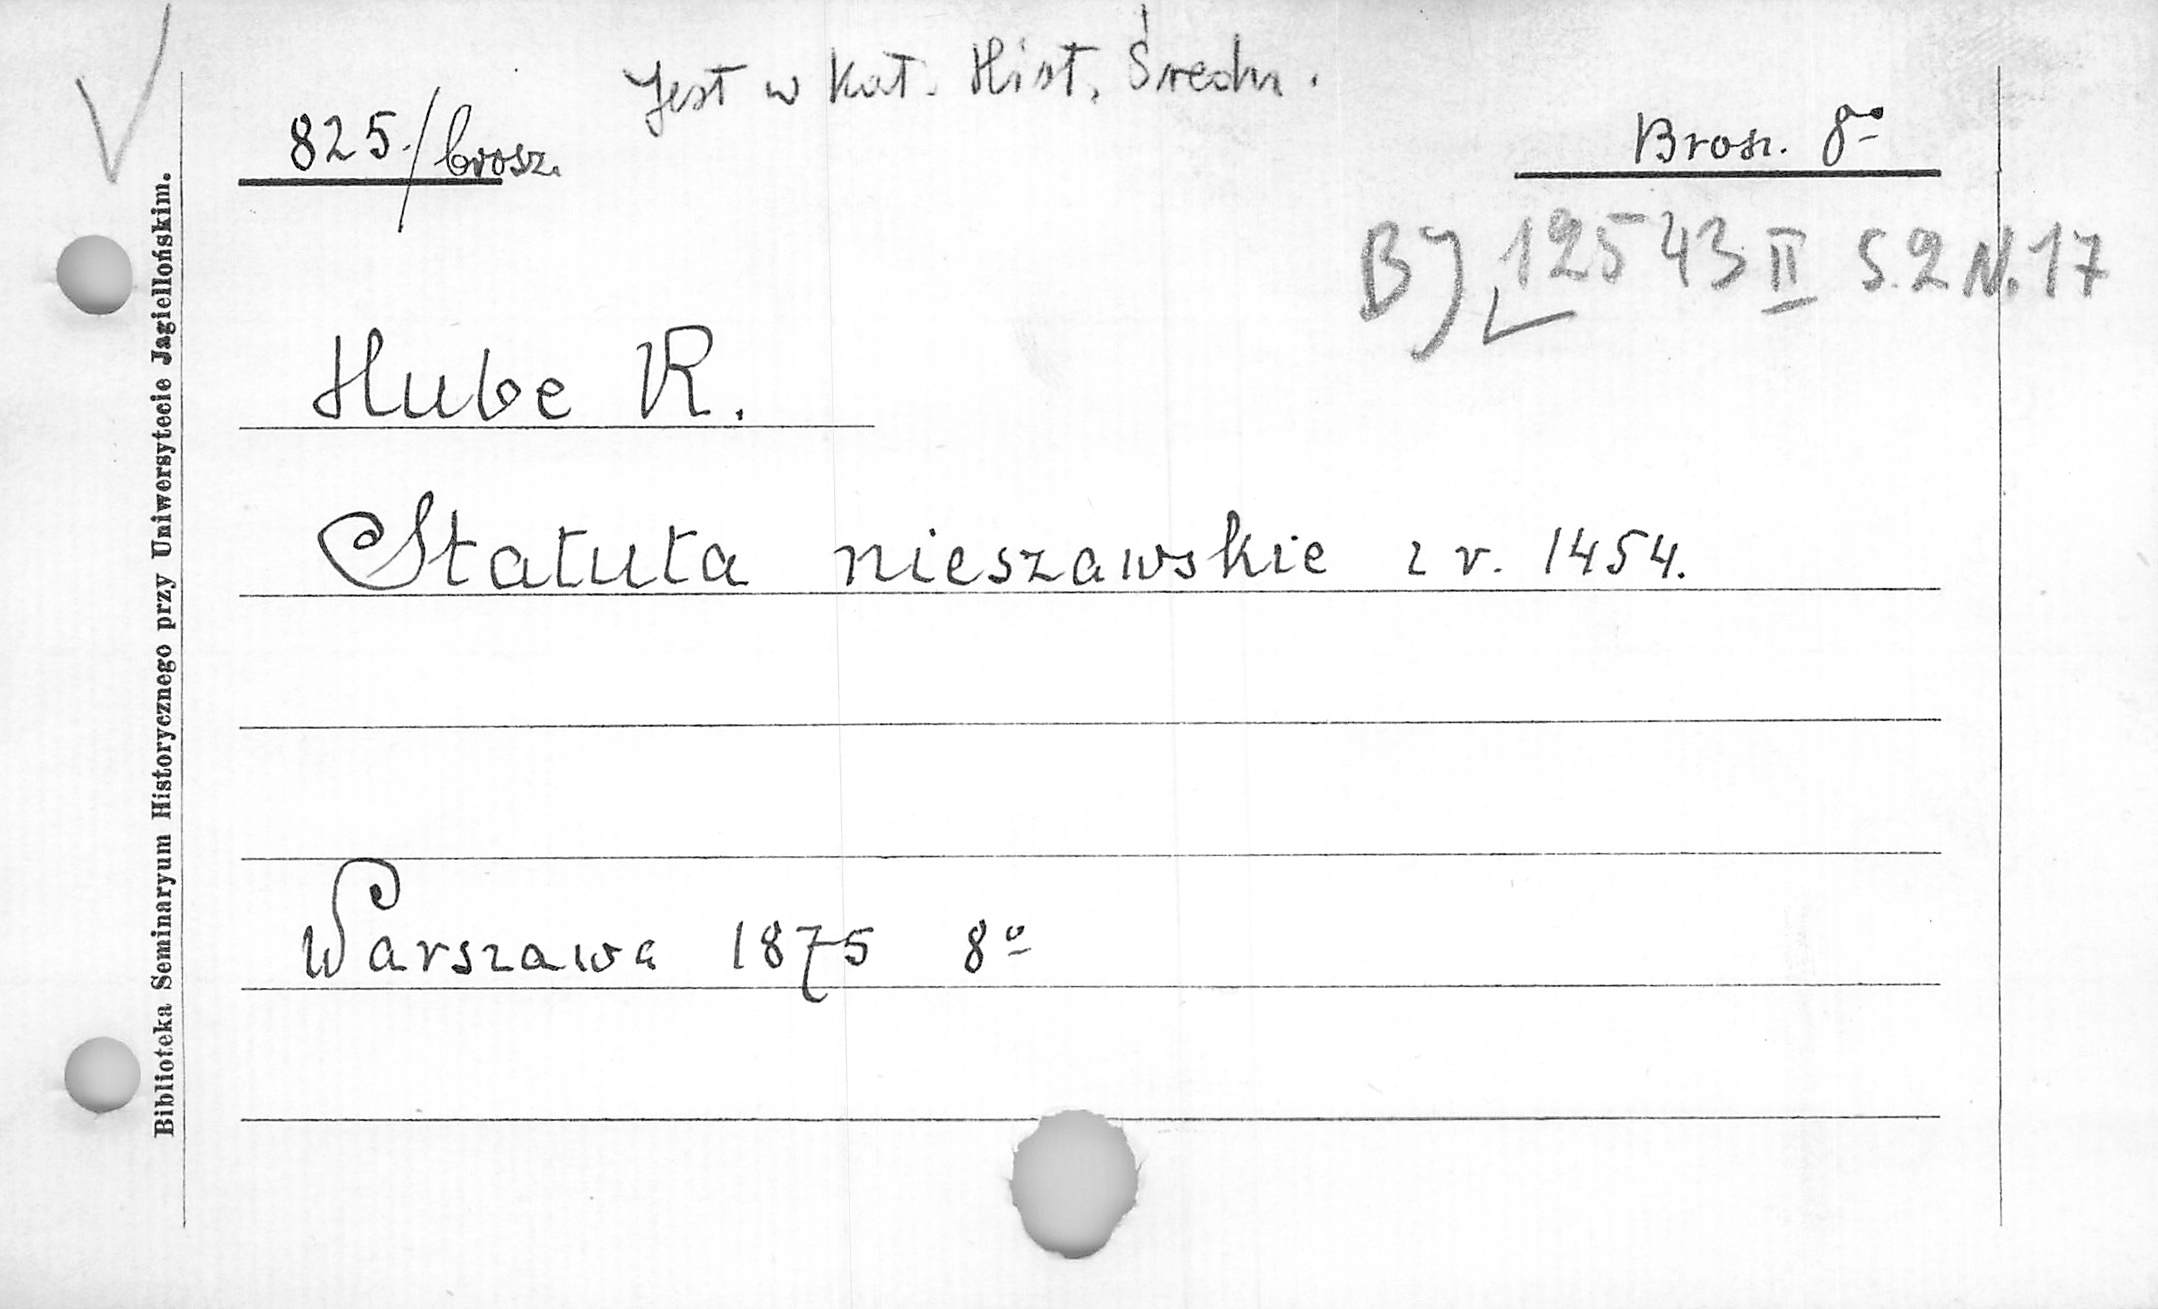 Jest w Kat. Hist. Średn.
825./brosz.
Brosz. 8º
BJ 12543 II S.2 N.17
Hube R.
Statuta nieszawskie z r. 1454.
Warszawa 1875 8º
Biblioteka Seminaryum Historycznego przy Uniwersytecie Jagiellońskim.